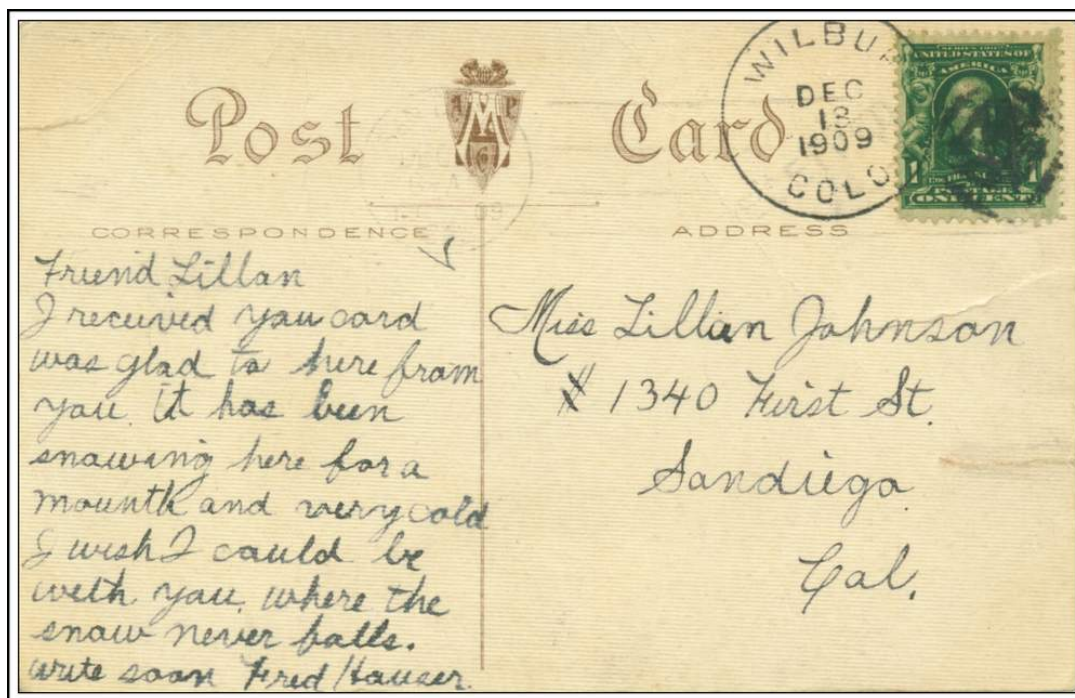 WILBUR
DEC
18
1909
COLO
SERIES 1902
UNITED STATES OF
AMERICA
1 1
POSTAGE
ONE CENT
Post Card
A M P
CORRESPONDENCE
ADDRESS
Friend Lillan
I received you card
was glad to here from
you. It has been
snowing here for a
mounth and very cold
I wish I could be
with you. where the
snow never falls.
write soon Fred Hauser.
Miss Lillian Johnson
# 1340 First St.
Sandiego
Cal.